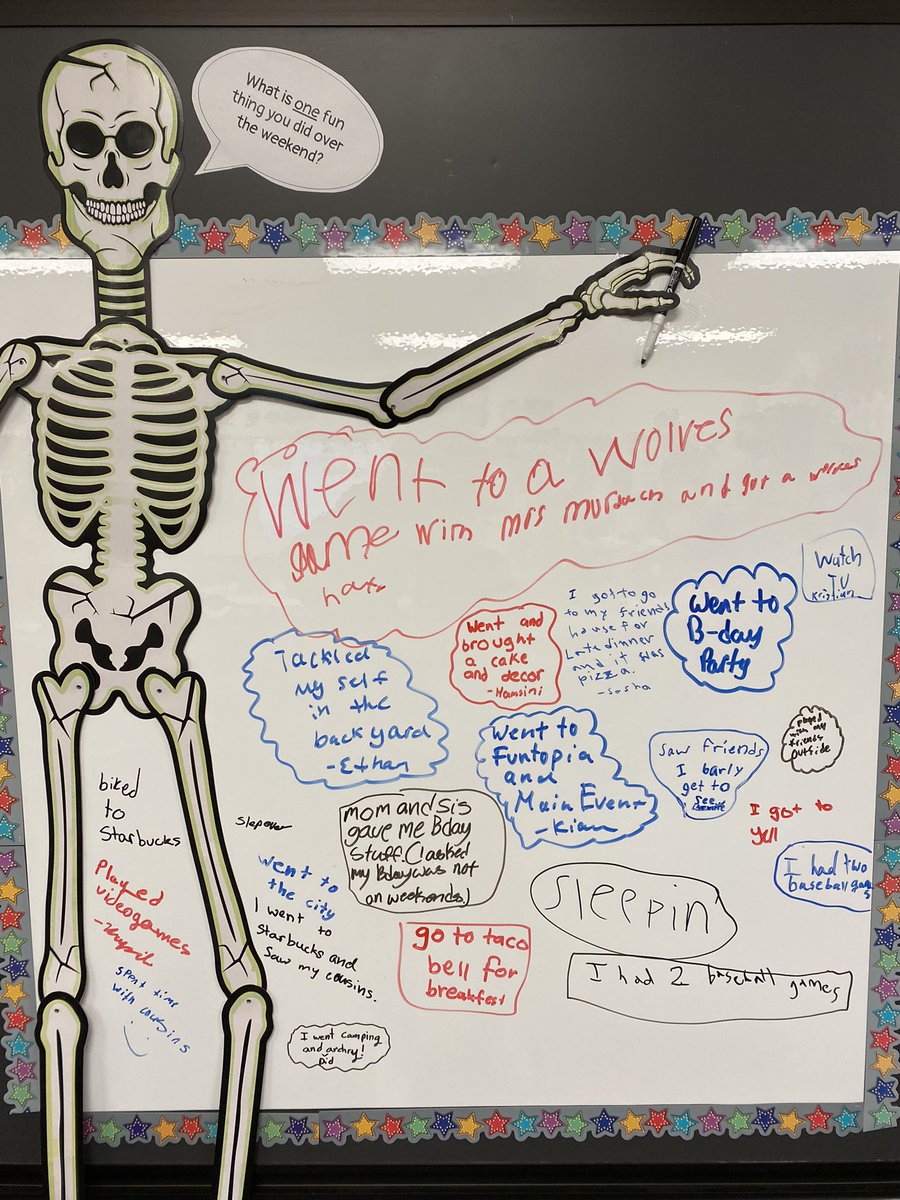 What is one fun
thing you did over
the weekend?
Went to a wolves
game with mrs and got a
Watch
T.V
Kristian
I got to go
to my friends
house for
Late dinner
and it was
pizza.
-Sosha
Went to
B-day
Party
Went and
brought
a cake
and decor
-Hamsini
Tackled
my self
in the
backyard
-Ethan
Went to
Funtopia
and
Main Event
-Kian
saw friends
I barly
get to
see
played
with my
friends
outside
I got to
yell
I had two
baseball games
mom and sis
gave me Bday
stuff. (I asked
my Bday was not
on weekends.)
biked
to
Starbucks
Slepover
Played
videogames
went to
the city
I went to
Starbucks and
saw my cousins.
spent time
with cousins
:)
go to taco
bell for
breakfast
Sleepin'
I had 2 baseball games
I went camping
and archry!
did